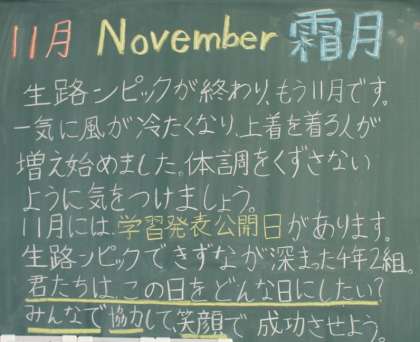 11月 November 霜月
生路ンピックが終わり、もう11月です。
一気に風が冷たくなり、上着を着る人が
増え始めました。体調をくずさない
ように気をつけましょう。
11月には、学習発表公開日があります。
生路ンピックできずなが深まった4年2組。
君たちは、この日をどんな日にしたい?
みんなで協力して、笑顔で成功させよう。